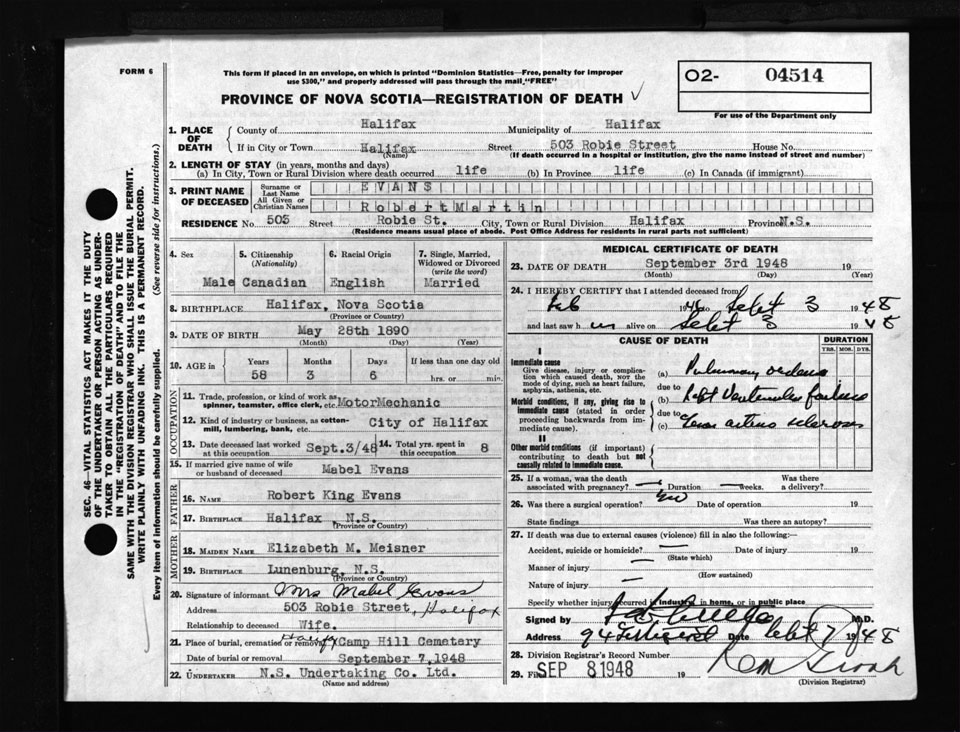 FORM 6
This form if placed in an envelope, on which is printed "Dominion Statistics—Free, penalty for improper
use $300," and properly addressed will pass through the mail "FREE"
O2- 04514
For use of the Department only
PROVINCE OF NOVA SCOTIA—REGISTRATION OF DEATH ✓
1. PLACE OF DEATH
County of Halifax Municipality of Halifax
If in City or Town Halifax Street 503 Robie Street House No.
(Name) (If death occurred in a hospital or institution, give the name instead of street and number)
2. LENGTH OF STAY (in years, months and days)
(a) In City, Town or Rural Division where death occurred life (b) In Province life (c) In Canada (if immigrant)
3. PRINT NAME OF DECEASED
Surname or Last Name EVANS
All Given or Christian Names Robert Martin
RESIDENCE No. 503 Street Robie St. City, Town or Rural Division Halifax Province N.S.
(Residence means usual place of abode. Post Office Address for residents in rural parts not sufficient)
SEC. 46—VITAL STATISTICS ACT MAKES IT THE DUTY
OF THE UNDERTAKER OR PERSON ACTING AS UNDER-
TAKER TO OBTAIN ALL THE PARTICULARS REQUIRED
IN THE "REGISTRATION OF DEATH" AND TO FILE THE
SAME WITH THE DIVISION REGISTRAR WHO SHALL ISSUE THE BURIAL PERMIT.
WRITE PLAINLY WITH UNFADING INK. THIS IS A PERMANENT RECORD.
Every item of information should be carefully supplied. (See reverse side for instructions.)
4. Sex
Male
5. Citizenship
(Nationality)
Canadian
6. Racial Origin
English
7. Single, Married,
Widowed or Divorced
(write the word)
Married
8. BIRTHPLACE Halifax, Nova Scotia
(Province or Country)
9. DATE OF BIRTH May 28th 1890
(Month) (Day) (Year)
10. AGE in Years Months Days If less than one day old
58 3 6 hrs. or min.
OCCUPATION
11. Trade, profession, or kind of work as
spinner, teamster, office clerk, etc. MotorMechanic
12. Kind of industry or business, as cotton-
mill, lumbering, bank, etc. City of Halifax
13. Date deceased last worked
at this occupation Sept.3/48
14. Total yrs. spent in
this occupation 8
15. If married give name of wife
or husband of deceased Mabel Evans
FATHER
16. NAME Robert King Evans
17. BIRTHPLACE Halifax N.S.
(Province or Country)
MOTHER
18. MAIDEN NAME Elizabeth M. Meisner
19. BIRTHPLACE Lunenburg, N.S.
(Province or Country)
20. Signature of informant Mrs Mabel Evans
Address 503 Robie Street, Halifax
Relationship to deceased Wife.
21. Place of burial, cremation or removal Camp Hill Cemetery
Date of burial or removal September 7,1948
22. UNDERTAKER N.S. Undertaking Co. Ltd.
(Name and address)
MEDICAL CERTIFICATE OF DEATH
23. DATE OF DEATH September 3rd 1948 19
(Month) (Day) (Year)
24. I HEREBY CERTIFY that I attended deceased from
Feb 1946 to Sept 3 1948
and last saw him alive on Sept 3 1948
CAUSE OF DEATH
DURATION
YRS. MOS. DYS.
I
Immediate cause
Give disease, injury or complica-
tion which caused death, NOT the
mode of dying, such as heart failure,
asphyxia, asthenia, etc.
(a) Pulmonary oedema
due to
Morbid conditions, if any, giving rise to
immediate cause (stated in order
proceeding backwards from im-
mediate cause).
(b) Left Ventricular failure
due to
(c) arterio sclerosis
II
Other morbid conditions (if important)
contributing to death but not
causally related to immediate cause.
25. If a woman, was the death
associated with pregnancy? — Duration — Weeks. Was there
a delivery?
26. Was there a surgical operation? no Date of operation 19
State findings Was there an autopsy?
27. If death was due to external causes (violence) fill in also the following:—
Accident, suicide or homicide? — Date of injury 19
(State which)
Manner of injury —
(How sustained)
Nature of injury —
Specify whether injury occurred in industry, in home, or in public place
Signed by M.D.
Address Date Sept 7 1948
28. Division Registrar's Record Number
29. Filed SEP 8 1948 19
(Division Registrar)